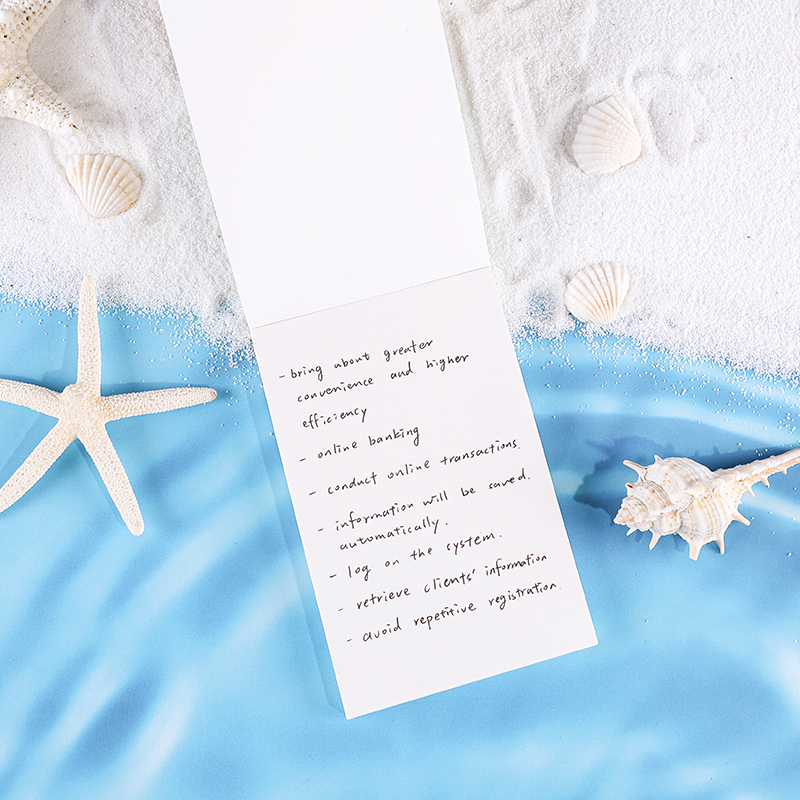 - bring about greater
convenience and higher
efficiency
- online banking
- conduct online transactions.
- information will be saved.
automatically.
- log on the system.
- retrieve clients' information
- avoid repetitive registration.